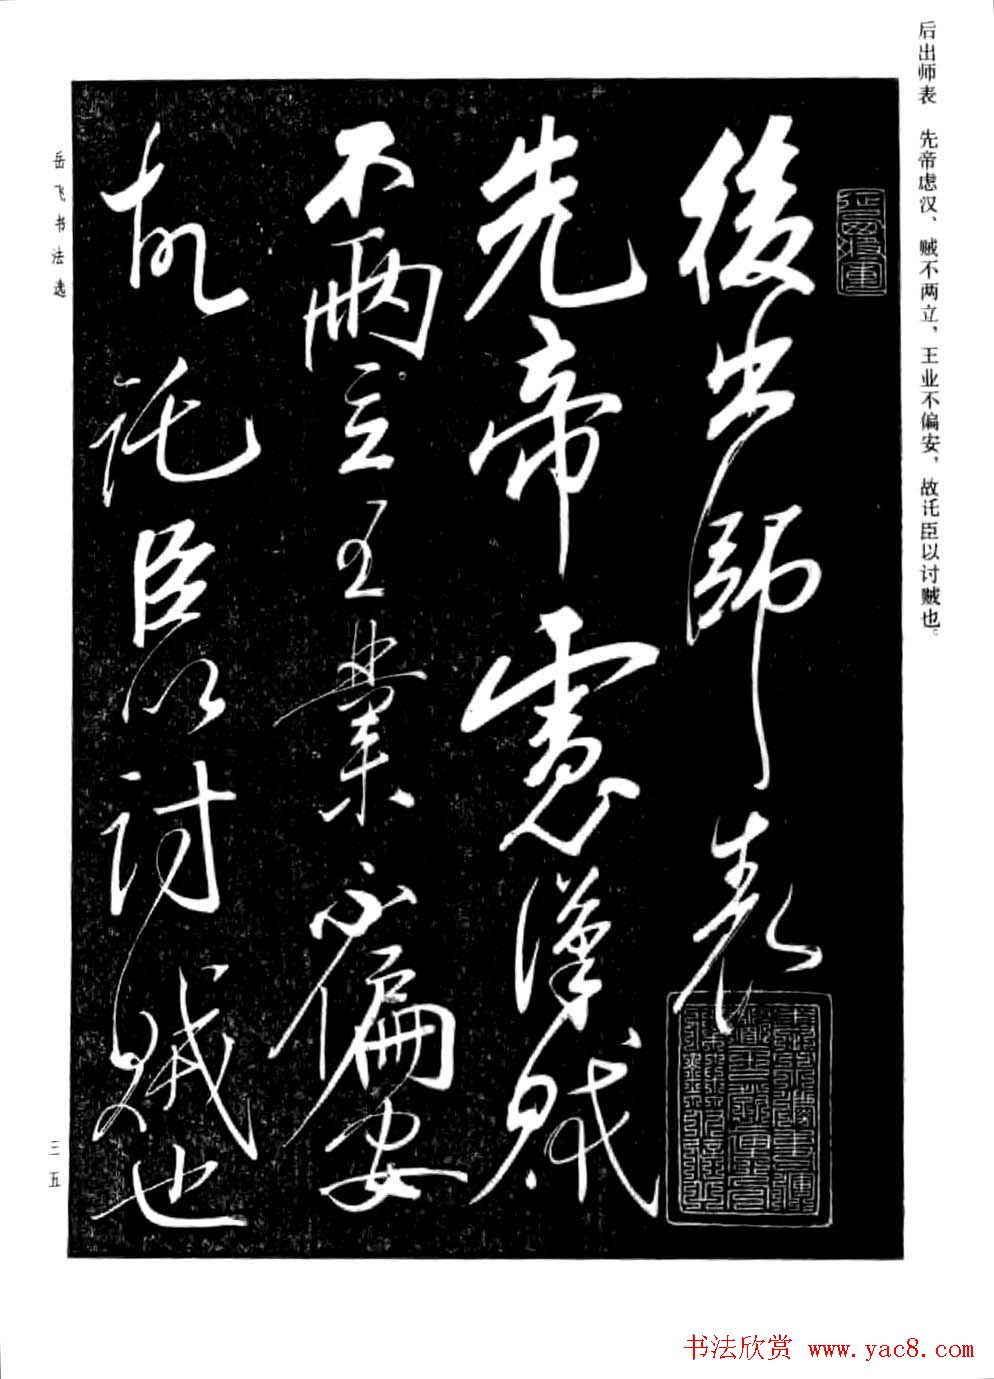 后出师表　先帝虑汉、贼不两立，王业不偏安，故讬臣以讨贼也。
後出師表
先帝慮漢賊
不兩立王業不偏安
故託臣以討賊也
岳飞书法选
三五
书法欣赏 www.yac8.com